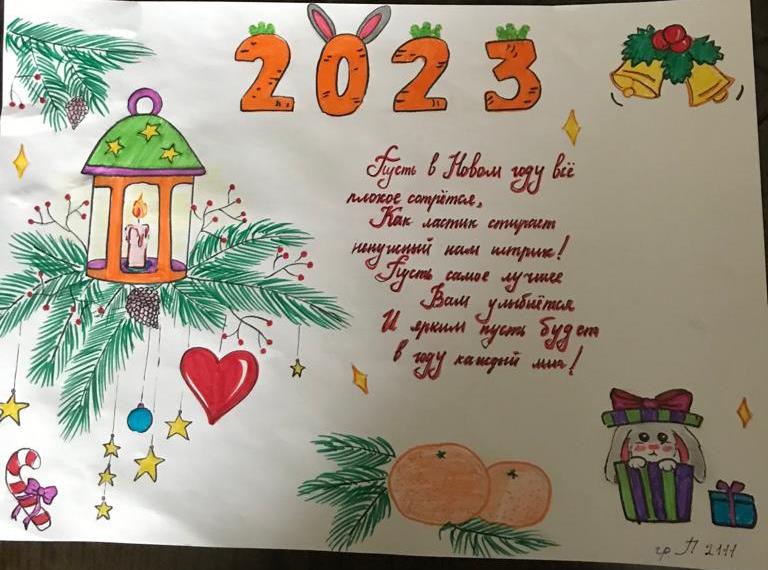 2023
Пусть в Новом году всё
плохое сотрётся,
Как ластик стирает
ненужный нам штрих!
Пусть самое лучшее
Вам улыбнётся
И ярким пусть будет
в году каждый миг!
гр. П 2111